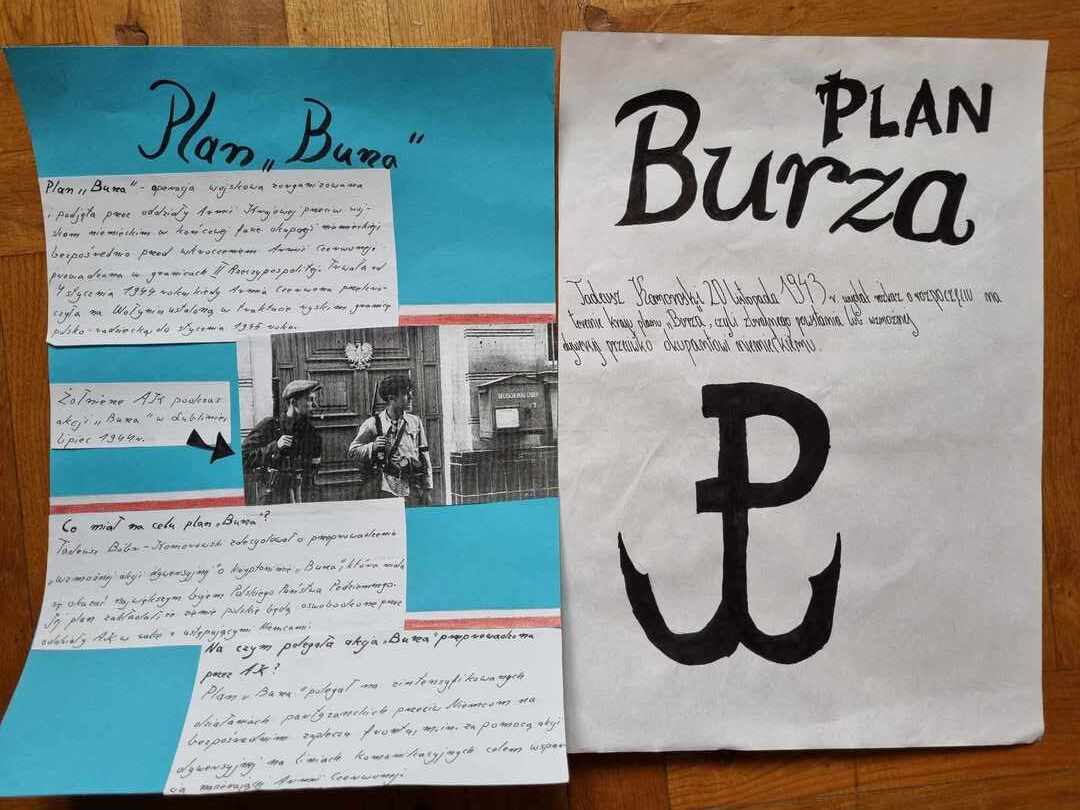 Plan „Burza"
Plan „Burza" - operacja wojskowa zorganizowana
i podjęta przez oddziały Armii Krajowej przeciw woj-
skom niemieckim w końcowej fazie okupacji niemieckiej
bezpośrednio przed wkroczeniem Armii Czerwonej
prowadzona w granicach II Rzeczypospolitej. Trwała od
4 stycznia 1944 roku, kiedy Armia Czerwona przekro-
czyła na Wołyniu ustaloną w traktacie ryskim granicę
polsko-radziecką, do stycznia 1945 roku.
Żołnierze AK podczas
akcji „Burza" w Lublinie,
lipiec 1944 r.
Co miał na celu plan „Burza"?
Tadeusz Bór-Komorowski zdecydował o przeprowadzeniu
„wzmożonej akcji dywersyjnej" o kryptonimie „Burza", która miała
się okazać największym bojem Polskiego Państwa Podziemnego.
Jej plan zakładał, że ziemie polskie będą oswobodzone przez
oddziały AK w walce z ustępującymi Niemcami.
Na czym polegała akcja „Burza" przeprowadzona
przez AK?
Plan „Burza" polegał na zintensyfikowanych
działaniach partyzanckich przeciw Niemcom na
bezpośrednim zapleczu frontu, m.in. za pomocą akcji
dywersyjnej na liniach komunikacyjnych celem wspar
cia nacierającej Armii Czerwonej
PLAN
Burza
Tadeusz Komorowski 20 Listopada 1943 r. wydał rozkaz o rozpoczęciu na
terenie kraju planu „Burza", czyli zbrojnego powstania lub wzmożnej
dywersji przeciwko okupantowi niemieckiemu.